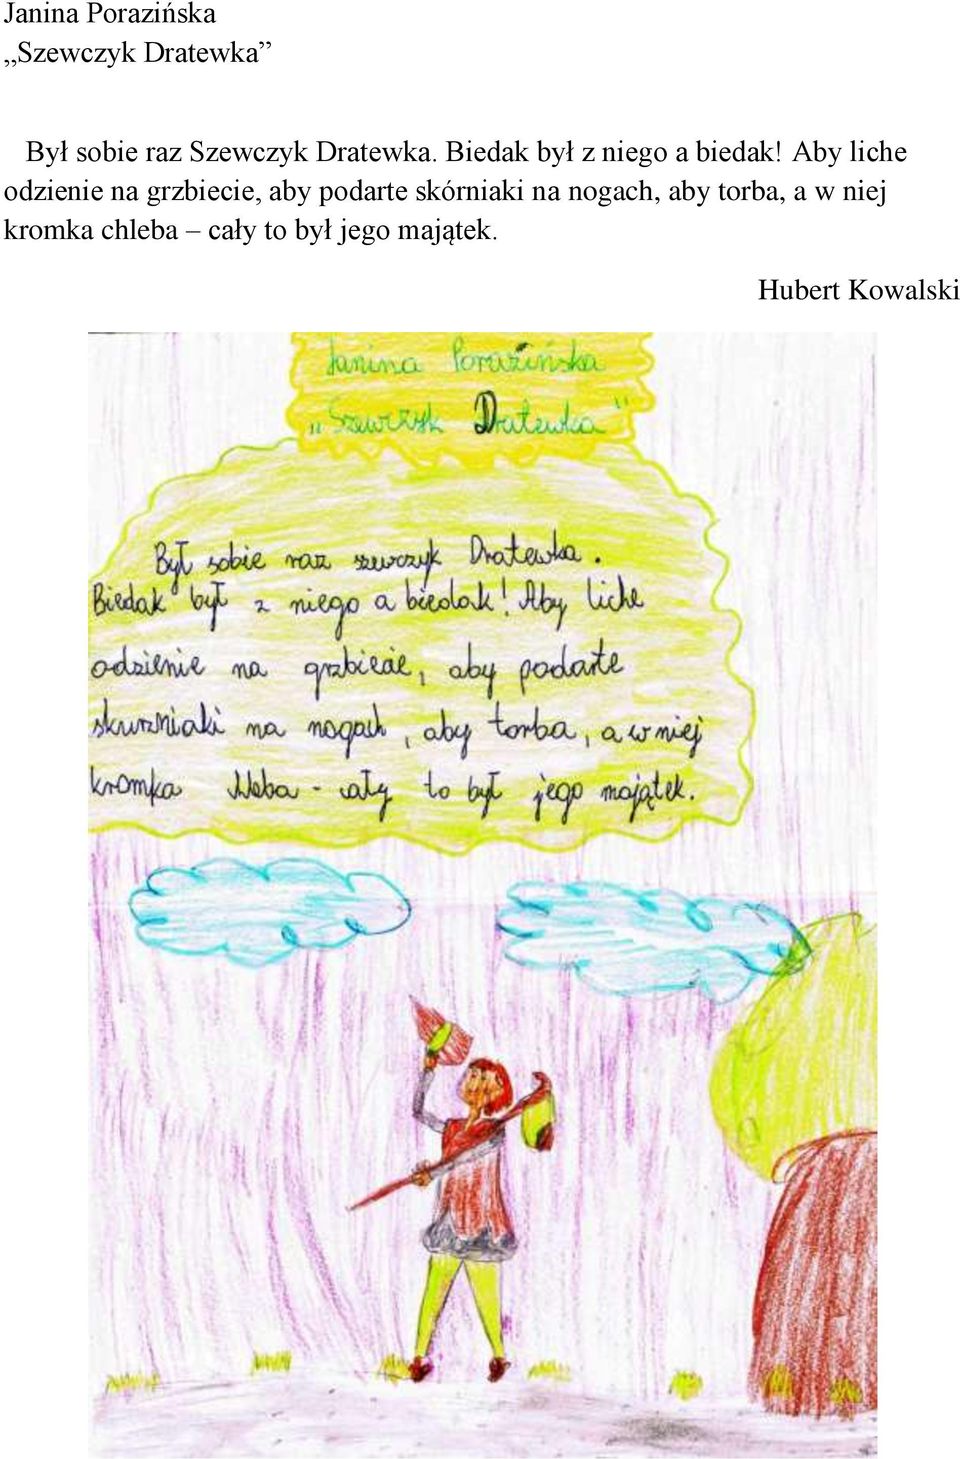 Janina Porazińska
„Szewczyk Dratewka”
Był sobie raz Szewczyk Dratewka. Biedak był z niego a biedak! Aby liche
odzienie na grzbiecie, aby podarte skórniaki na nogach, aby torba, a w niej
kromka chleba – cały to był jego majątek.
Hubert Kowalski
Janina Porazińska
„Szewczyk Dratewka”
Był sobie raz szewczyk Dratewka.
Biedak był z niego a biedak! Aby liche
odzienie na grzbiecie, aby podarte
skurzniaki na nogach, aby torba, a w niej
kromka chleba - cały to był jego majątek.